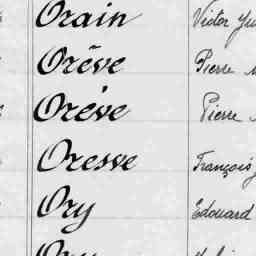 Orain Victor
Orêve Pierre
Oréve Pierre
Oresve François
Ory Edouard